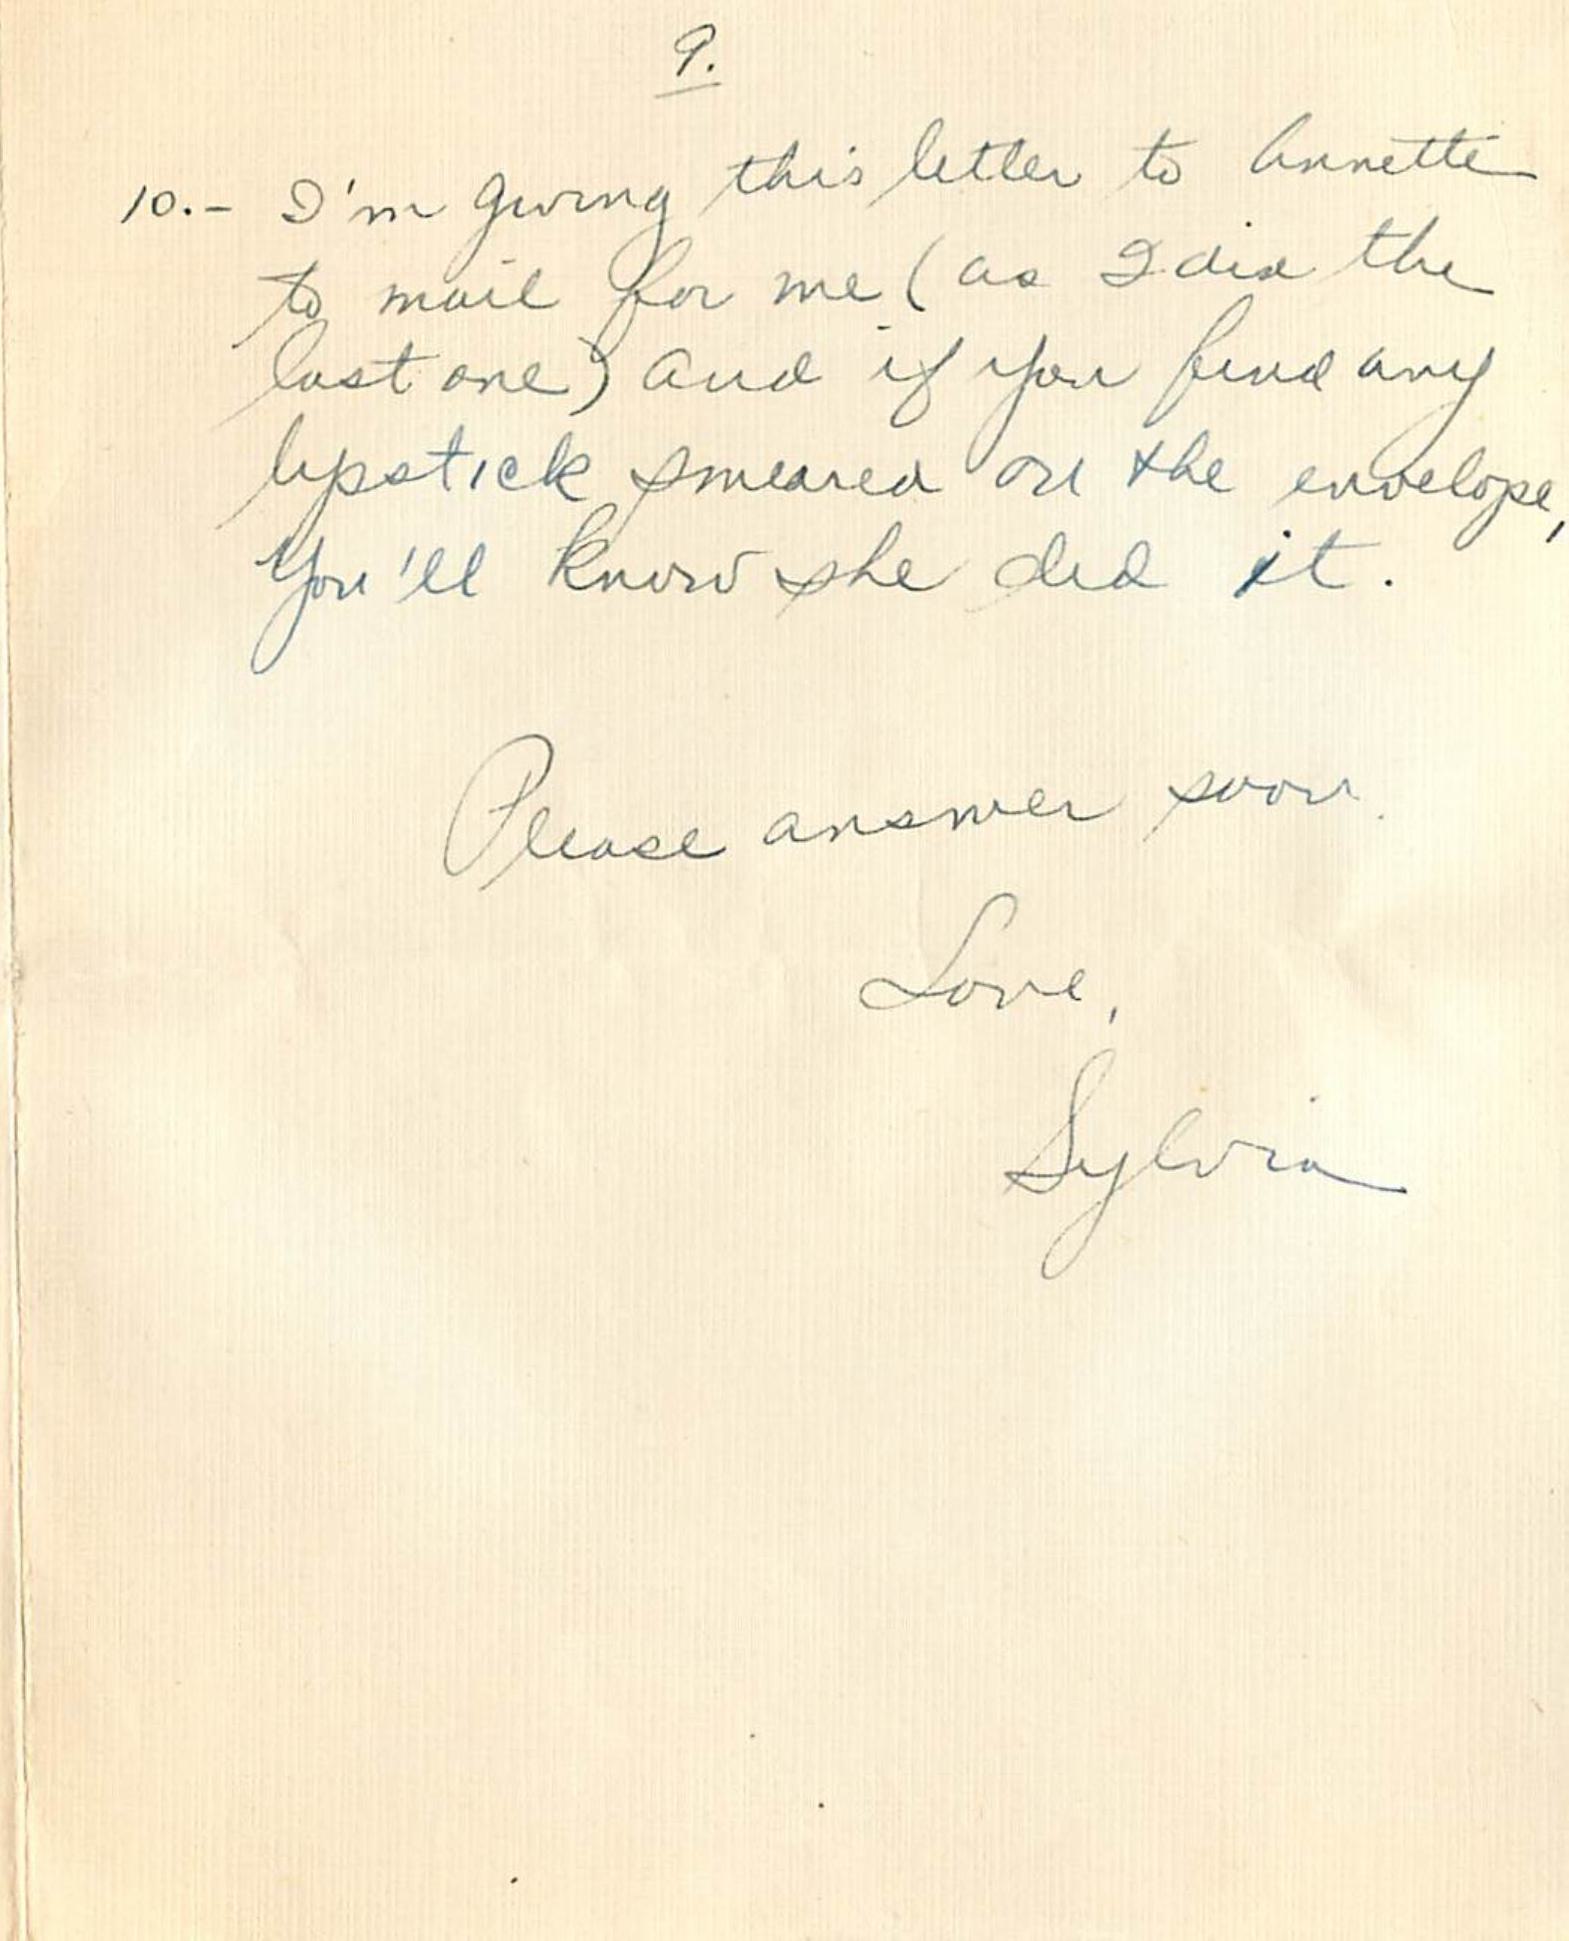 9.
10.- I'm giving this letter to Annette
to mail for me (as I did the
last one) and if you find any
lipstick smeared on the envelope,
you'll know she did it.
Please answer soon.
Love,
Sylvia